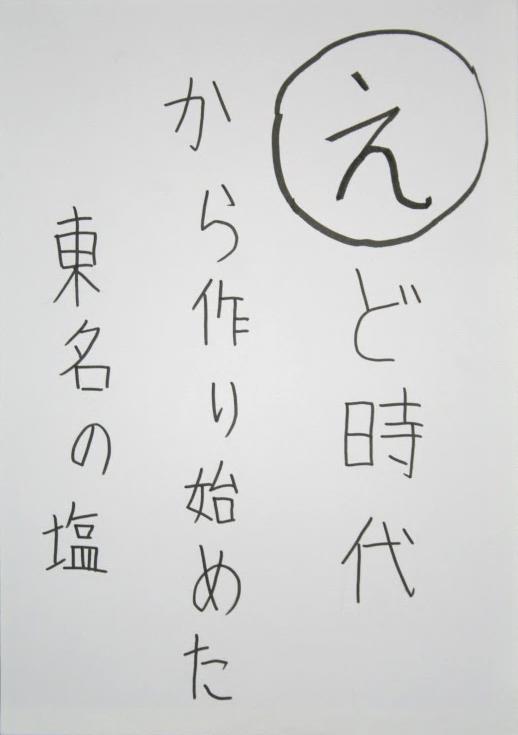 えど時代
から作り始めた
東名の塩